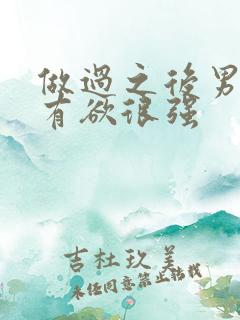 做过之后男
有欲很强
吉杜玖美
未经同意禁止转载